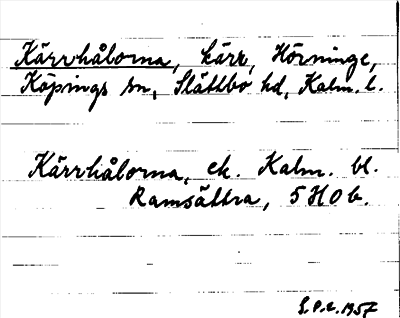 Kärrhålorna, kärr, Hörninge,
Köpings sn, Slättbo hd, Kalm. l.
Kärrhålorna, ek. Kalm. bl.
Ramsättra, 5 H 0 b.
1957